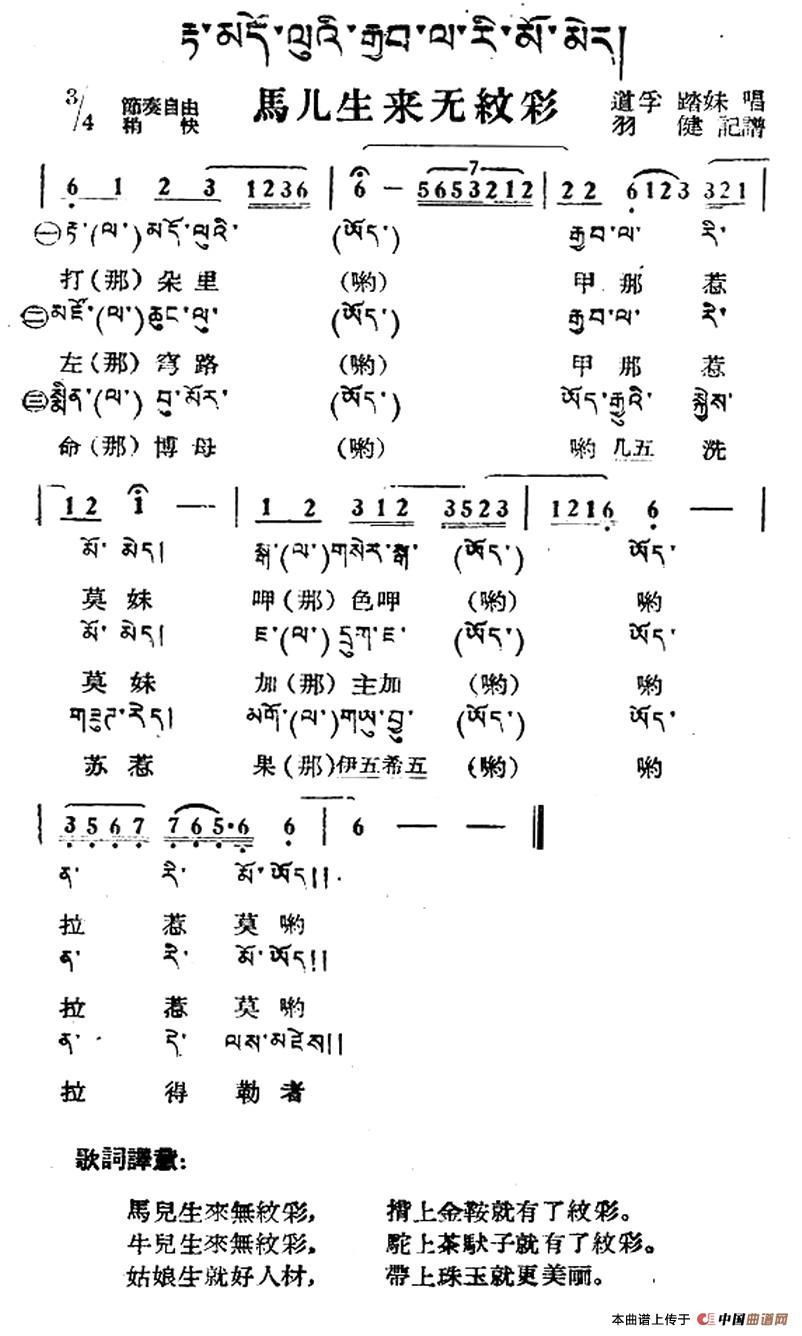 རྟ་མདོ་ལུའི་རྒྱབ་ལ་རི་མོ་མེད།
3/4 節奏自由 稍快 馬儿生来无紋彩 道孚 踏妹 唱
羽 健 記譜
6 1 2 3 1236 | 6 — 5653212 | 22 6123 321 |
㊀རྟ་(ལ་)མདོ་ལུའི་ (ཨོད་) རྒྱབ་ལ་ རི་
打(那)朵里 (喲) 甲那 惹
㊁མཛོ་(ལ་)ཆུང་ལུ་ (ཨོད་) རྒྱབ་ལ་ རི་
左(那)穹路 (喲) 甲那 惹
㊂སྨིན་(ལ་)བུ་མོར་ (ཨོད་) ཨོད་རྒྱུའི་ སྐྱེས་
命(那)博母 (喲) 喲几五 洗
12 i — | 1 2 312 3523 | 1216 6 — |
མོ་མེད། སྒ་(ལ་)གསེར་སྒ་ (ཨོད་) ཨོད་
莫妹 呷(那)色呷 (喲) 喲
མོ་མེད། ཇ་(ལ་)དྲུག་ཇ་ (ཨོད་) ཨོད་
莫妹 加(那)主加 (喲) 喲
གཟུཊ་རེད། མགོ་(ལ་)གཡུ་བྱུ་ (ཨོད་) ཨོད་
苏惹 果(那)伊五希五 (喲) 喲
3567 765·6 6 | 6 — — ‖
ན་ རི་ མོ་ཨོད།།
拉 惹 莫喲
ན་ རི་ མོ་ཨོད།།
拉 惹 莫喲
ན་ དེ་ ལས་མཛེས།།
拉 得 勒者
歌詞譯意:
馬兒生來無紋彩, 揹上金鞍就有了紋彩。
牛兒生來無紋彩, 駝上茶馱子就有了紋彩。
姑娘生就好人材, 帶上珠玉就更美丽。
本曲谱上传于 中国曲谱网